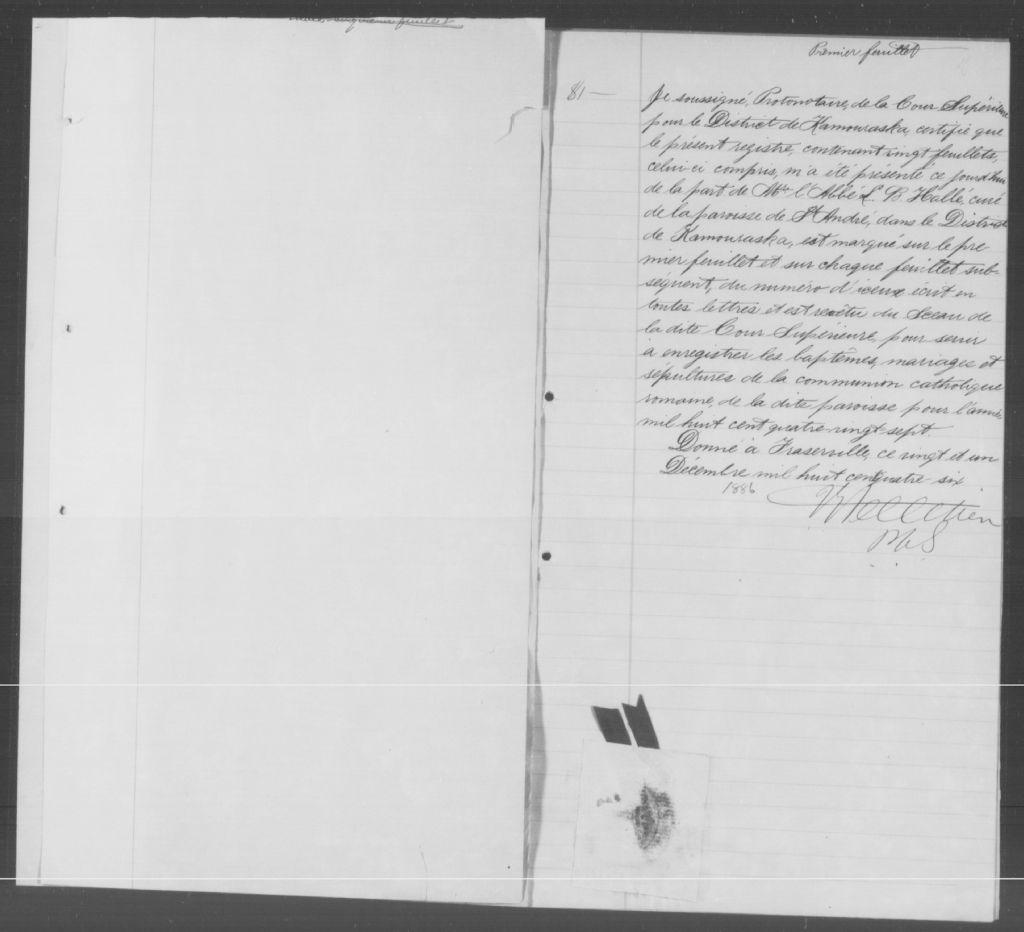 feuillet
Premier feuillet
81 —
Je soussigné, Protonotaire, de la Cour Supérieure
pour le District de Kamouraska, certifie que
le présent registre, contenant vingt feuillets,
celui-ci compris, m'a été présenté ce jourd'hui
de la part de Mr. l'Abbé L. B. Hallé, curé
de la paroisse de St André, dans le District
de Kamouraska, est marqué sur le pre-
mier feuillet et sur chaque feuillet sub-
séquent, du numéro d'iceux écrit en
toutes lettres et est revêtu du Sceau de
la dite Cour Supérieure, pour servir
à enregistrer les baptêmes, mariages et
sépultures de la communion catholique
romaine, de la dite paroisse pour l'année
mil huit cent quatre-vingt-sept.
Donné à Fraserville, ce vingt et un
Décembre mil huit cent quatre six
1886
Pelletier
P.C.S